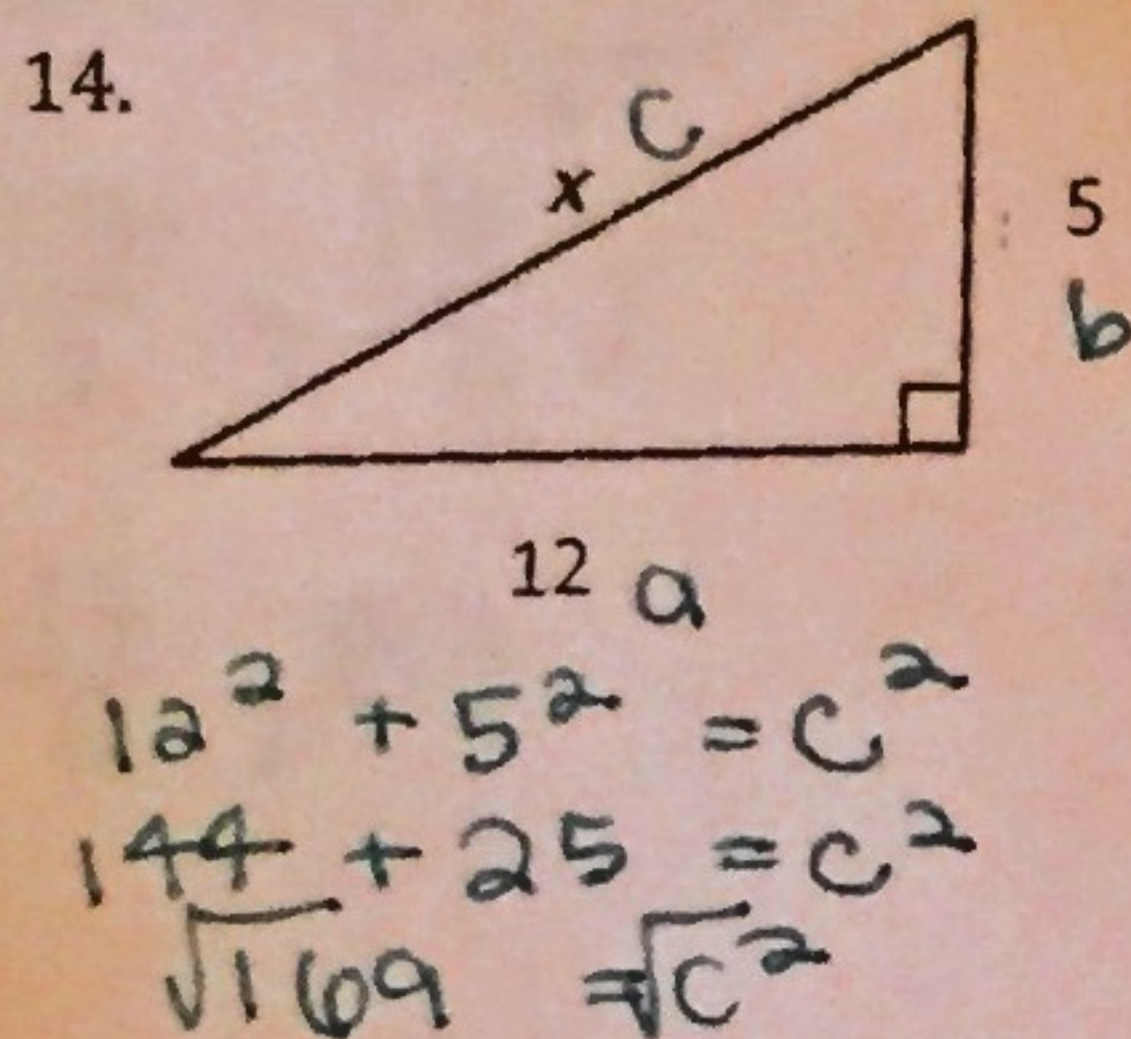 14.
x C
5
b
12 a
12² + 5² = C²
144 + 25 = C²
√169 = √C²